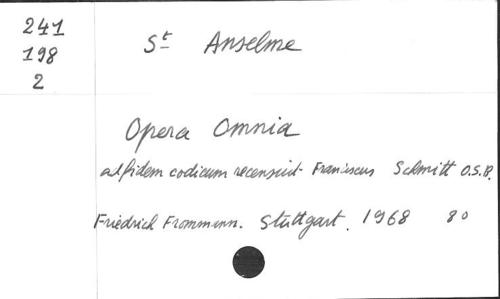 241
198
2
St Anselme
Opera Omnia
ad fidem codicum recensuit Franciscus Schmitt O.S.B.
Friedrich Frommann. Stuttgart. 1968 8o